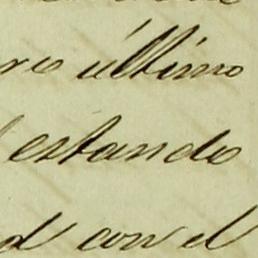 último
estando
con el